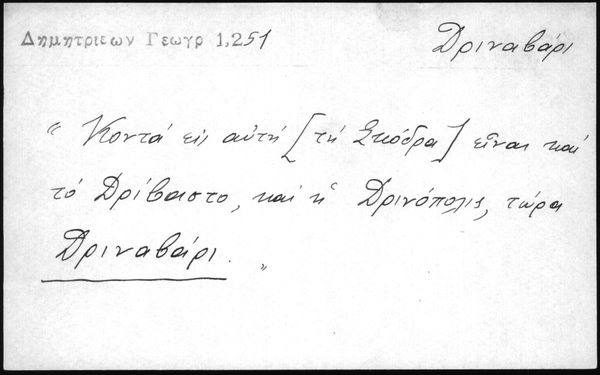 Δημητριεων Γεωγρ 1,251
Δριναβάρι
" Κοντά εἰς αὐτή [τή Σκόδρα] εἶναι καί
τό Δρίβαστο, καί ἡ Δρινόπολις, τώρα
Δριναβάρι. "